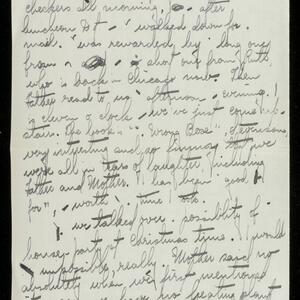 checkers all morning, after
luncheon I walked down for
mail. was rewarded by long one
from a short one from Ruth,
who is back in Chicago now. Then
father read to us afternoon evening!
eleven o'clock we've just come up
stairs. The book "Wrong Box", Stevenson,
very interesting and so funny that we
were all in tears of laughter, including
Father and Mother. I has been good
for", worth time
we talked over possibility of
house party at Christmas time. I would
impossible, really. Mother said no
absolutely when we first mentioned
have no heating plant